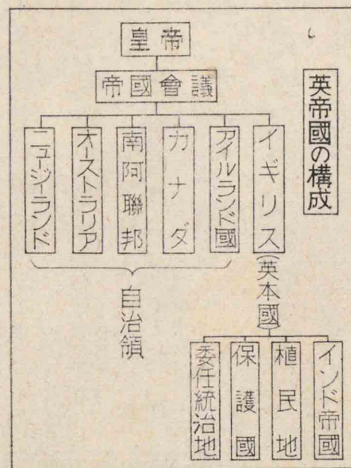 英帝國の構成
皇帝
帝國會議
イギリス(英本國)
アイルランド國
カナダ
南阿聯邦
オーストラリア
ニュージイランド
自治領
インド帝國
植民地
保護國
委任統治地